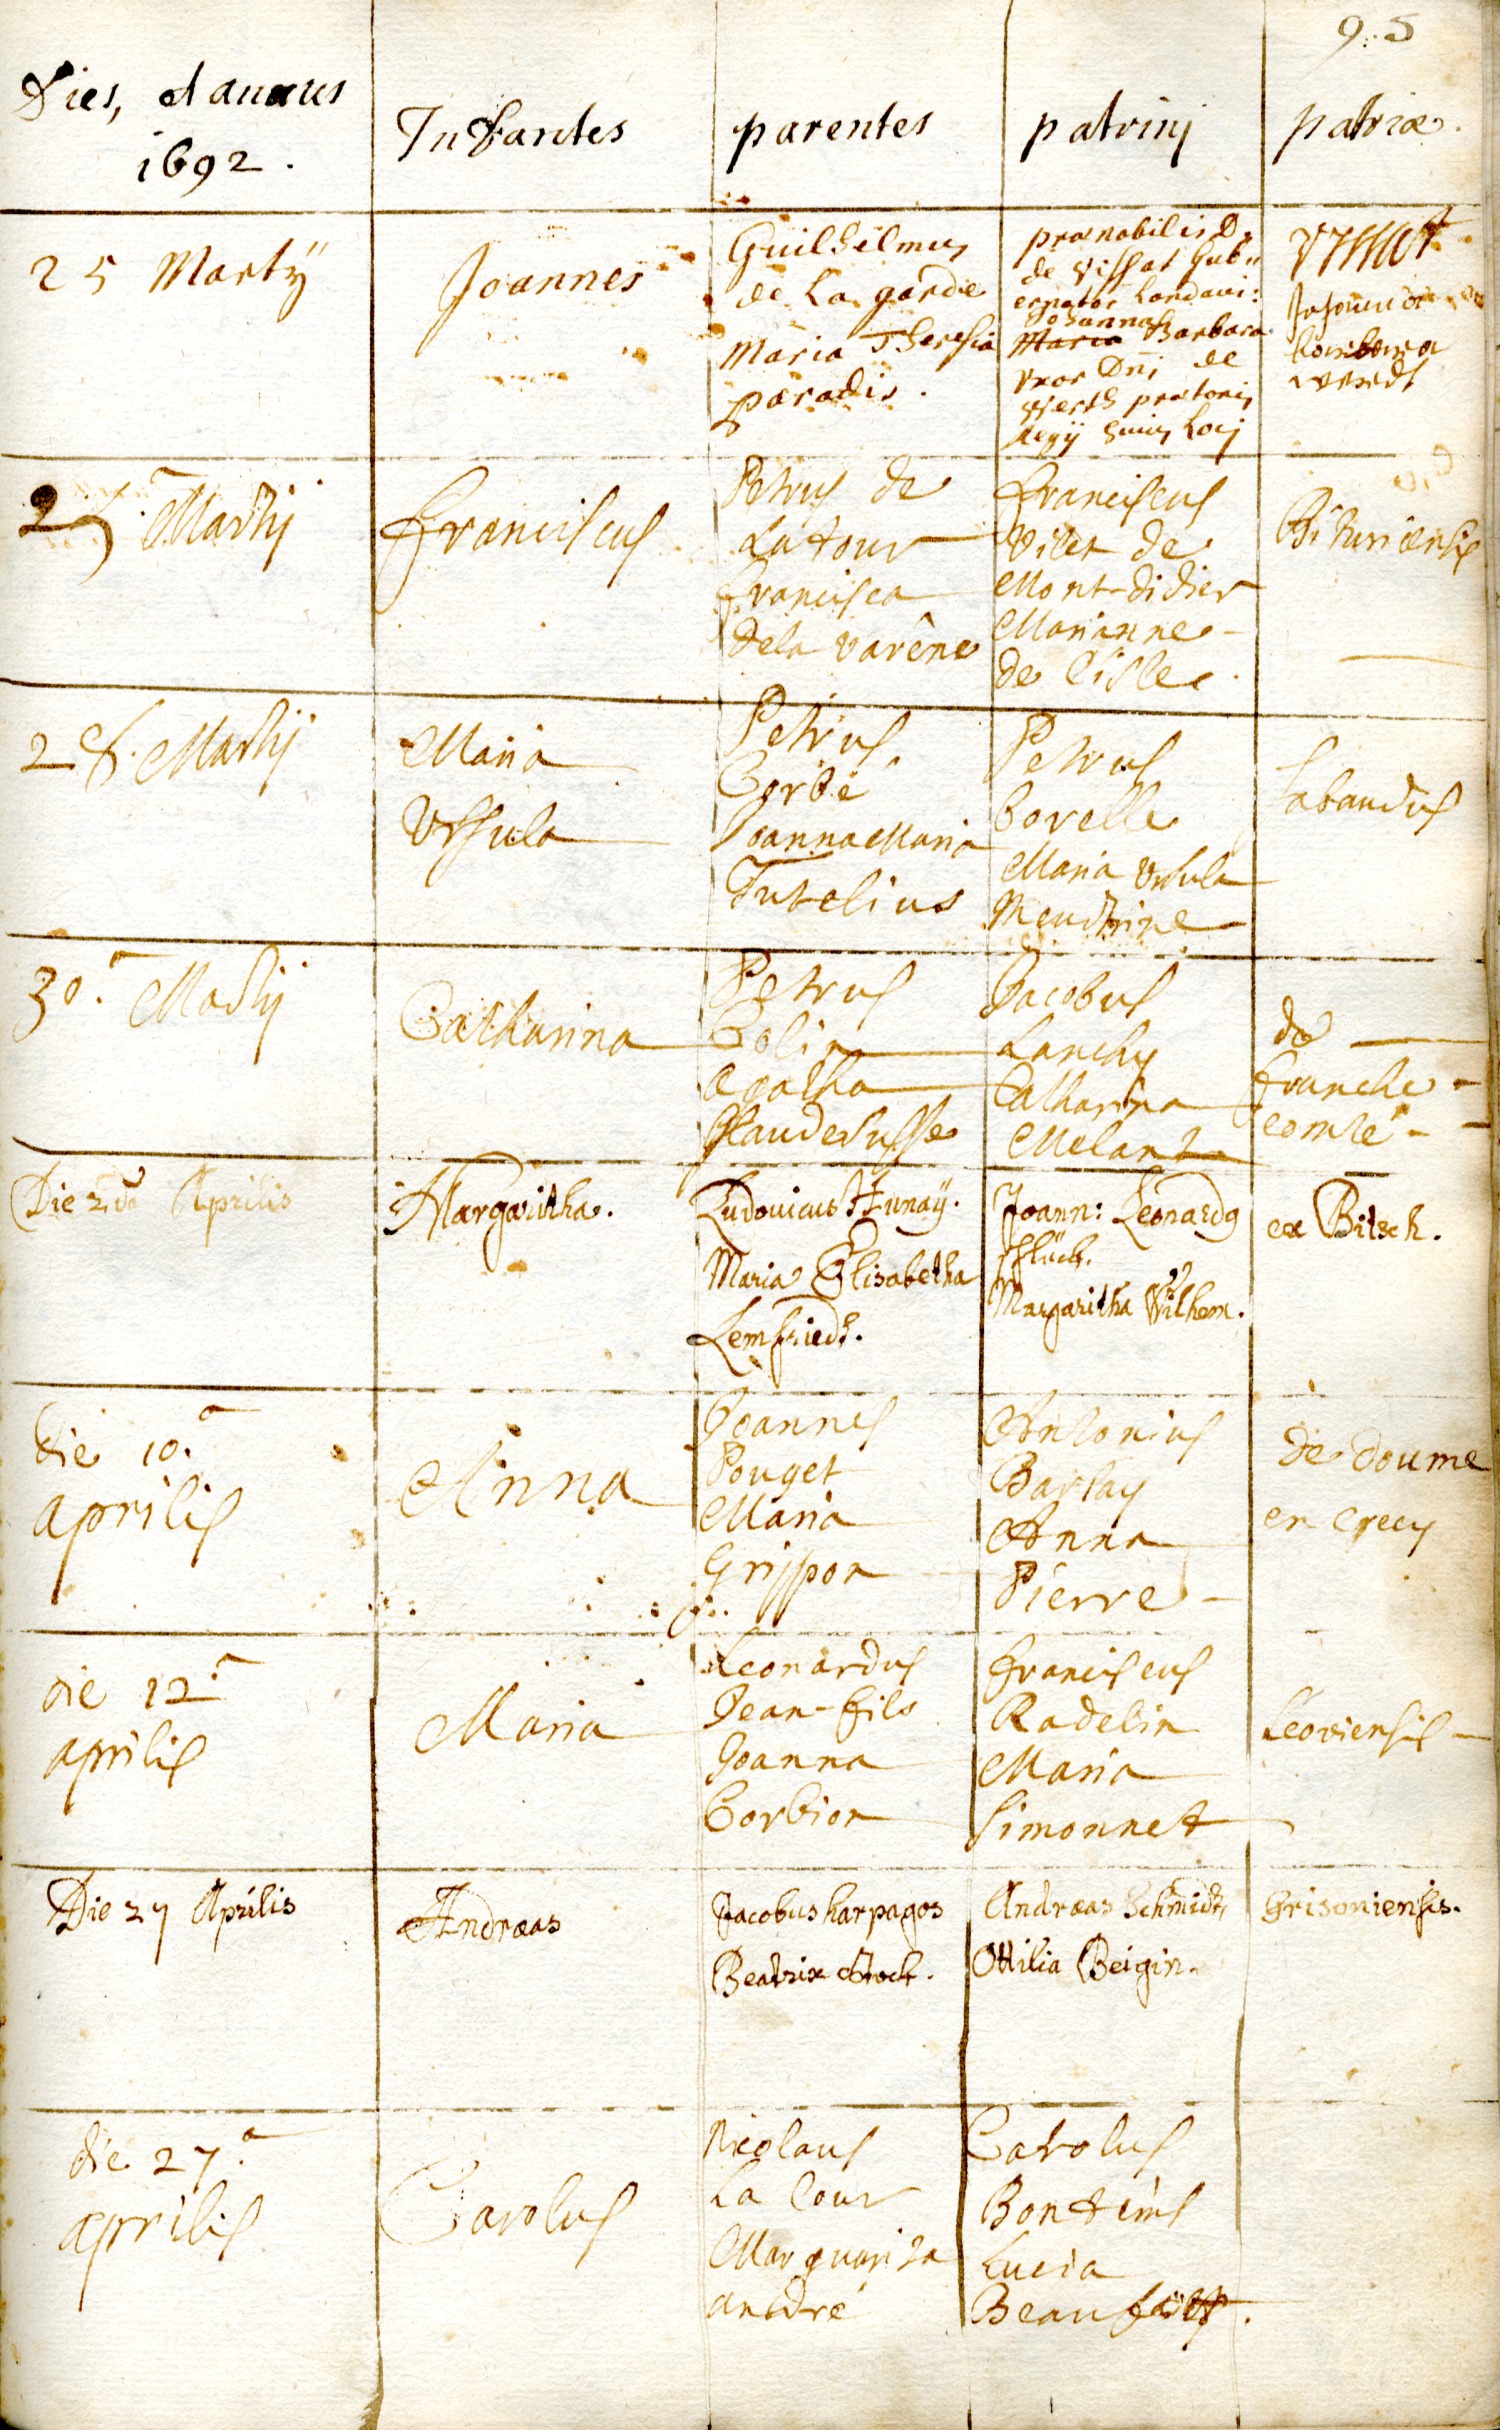 95
Dies, et annus
1692.
Infantes
parentes
patrinj
patriæ.
25 Martÿ
Joannes
Guilhelmus
de La garde
Maria Theresia
paradis.
prænobilis D.
de vissat Gub„
ernator Landavi:
Johanna
Maria Barbara
vxor Dnj de
werth prætoris
Regÿ huius Locj
25. Martij
Franciscus
Petrus de
La tour
francisca
de la varêne
franciscus
Vilet de
Mont-didier
Marianne
de l'isle.
Bituriensis
28. Martij
Maria
Vrsula
Petrus
Corbé
Joanna Maria
Tutelius
Petrus
borelle
Maria Vrsula
Meudrine
Sabaudus
30.a Martij
Catharina
Petrus
Colin
Agatha
Glaudesusse
Jacobus
Lanchy
Catharina
Melant
de
franche-
comté
Die 2.da Aprilis
Margaritha.
Ludovicus Hunaÿ.
Maria Elisabetha
Lemfriedt.
Joann: Leonardg
Margaritha Wilhem.
ex Bitsch.
die 10.a
aprilis
Anna
Joannes
Pouget
Maria
Grippon
Antonius
Barlay
Anna
Pierre
de doume
en crecy
die 12.a
aprilis
Maria
Leonardus
Jean-fils
Joanna
Corbion
franciscus
Radelin
Maria
Simonnet
Leoviensis
Die 27 Aprilis
Andræas
Jacobus harpagos
Beatrix Stock.
Andræas Schmidt,
Ottilia Beigin.
Grisoniensis.
die 27.a
aprilis
Carolus
Nicolaus
La Cour
Marguarita
andré
Carolus
Bontems
Lucia